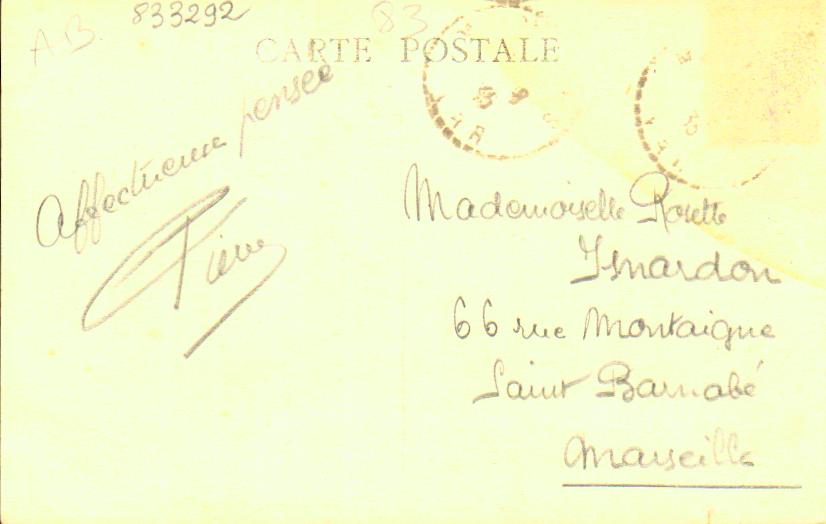 A.B. 833292 83
CARTE POSTALE
VAR
VAR
Affectueuse pensée
Pierre
Mademoiselle Rosette
Isnardon
66 rue Montaigne
Saint Barnabé
Marseille